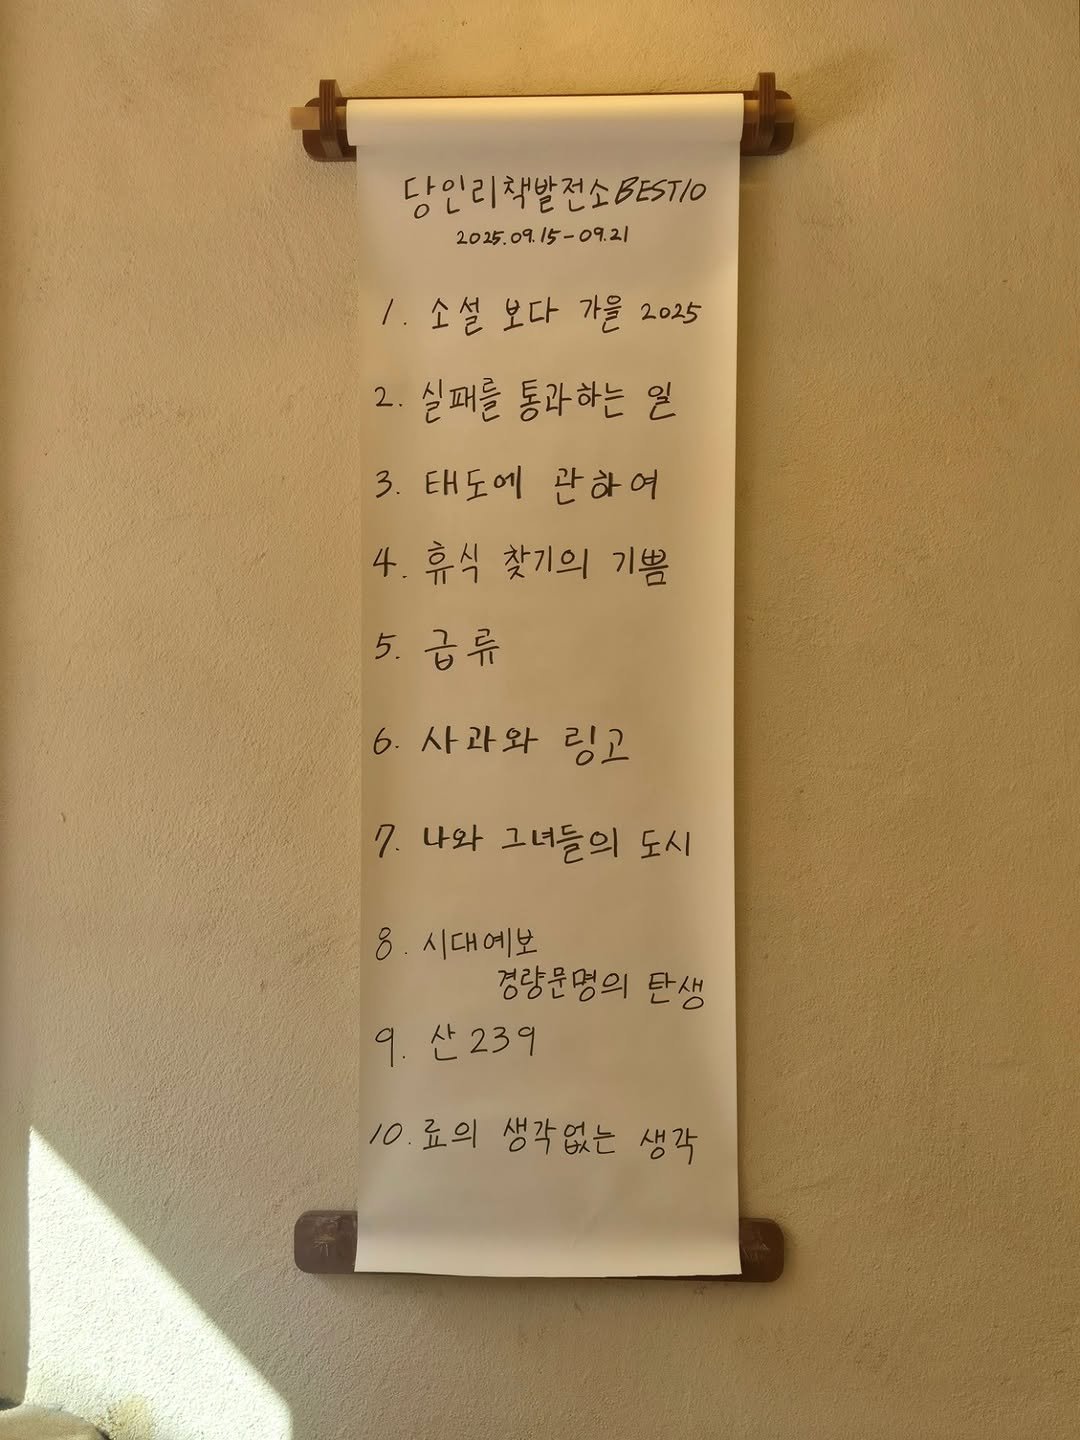 당인리책발전소BEST10
2025.09.15-09.21
1. 소설 보다 가을 2025
2. 실패를 통과하는 일
3. 태도에 관하여
4. 휴식 찾기의 기쁨
5. 급류
6. 사과와 링고
7. 나와 그녀들의 도시
8. 시대예보
경량문명의 탄생
9. 산239
10. 료의 생각없는 생각